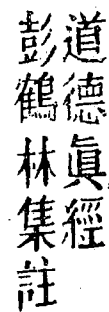 道德眞經
彭鶴林集註